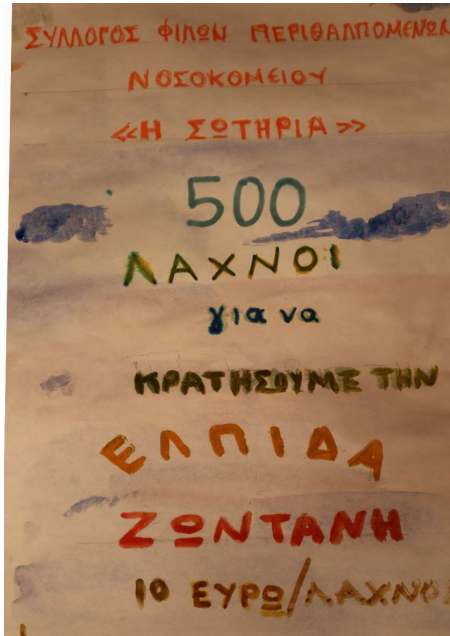 ΣΥΛΛΟΓΟΣ ΦΙΛΩΝ ΠΕΡΙΘΑΛΠΟΜΕΝΩΝ
ΝΟΣΟΚΟΜΕΙΟΥ
«Η ΣΩΤΗΡΙΑ»
500
ΛΑΧΝΟΙ
για να
ΚΡΑΤΗΣΟΥΜΕ ΤΗΝ
ΕΛΠΙΔΑ
ΖΩΝΤΑΝΗ
10 ΕΥΡΩ/ΛΑΧΝΟΣ